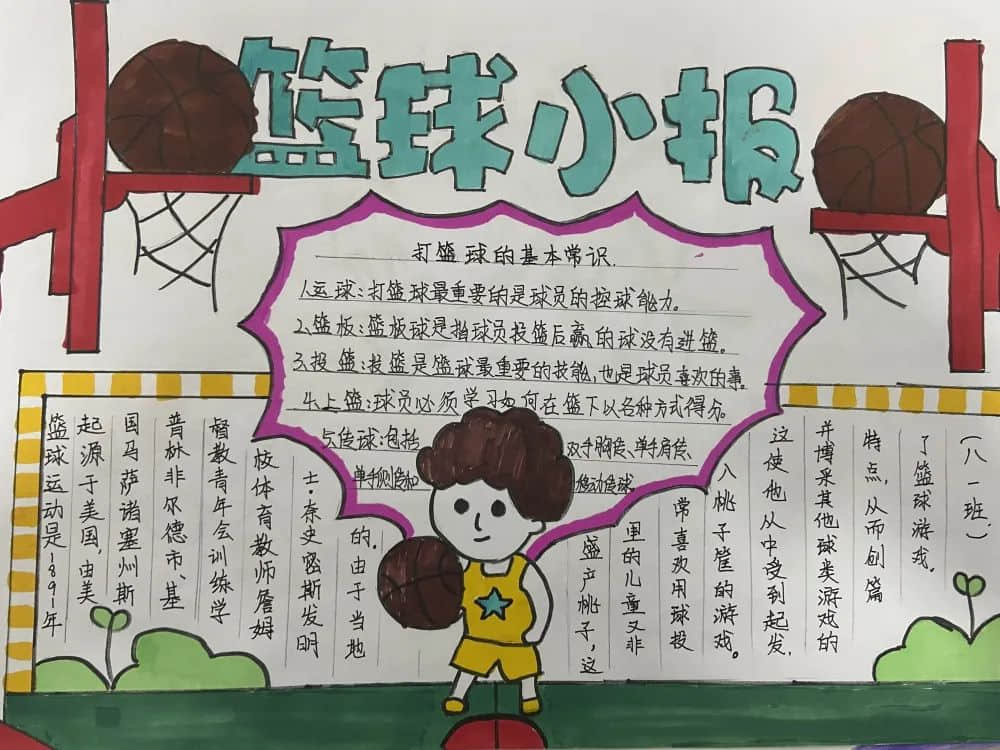 篮球小报
打篮球的基本常识.
1.运球:打篮球最重要的是球员的控球能力。
2.篮板:篮板球是指球员投篮后赢的球没有进篮。
3.投篮:投篮是篮球最重要的技能,也是球员喜欢的事。
4.上篮:球员必须学习如何在篮下以各种方式得分。
5.传球:包括双手胸传、单手肩传、
单手侧传和移动传球。
篮球运动是1891年
起源于美国,由美
国马萨诸塞州斯
普林菲尔德市、基
督教青年会训练学
校体育教师詹姆
士·奈史密斯发明
的.由于当地
盛产桃子,这
里的儿童又非
常喜欢用球投
入桃子筐的游戏。
这使他从中受到起发,
并博采其他球类游戏的
特点,从而创篇
了篮球游戏.
(八一班:)